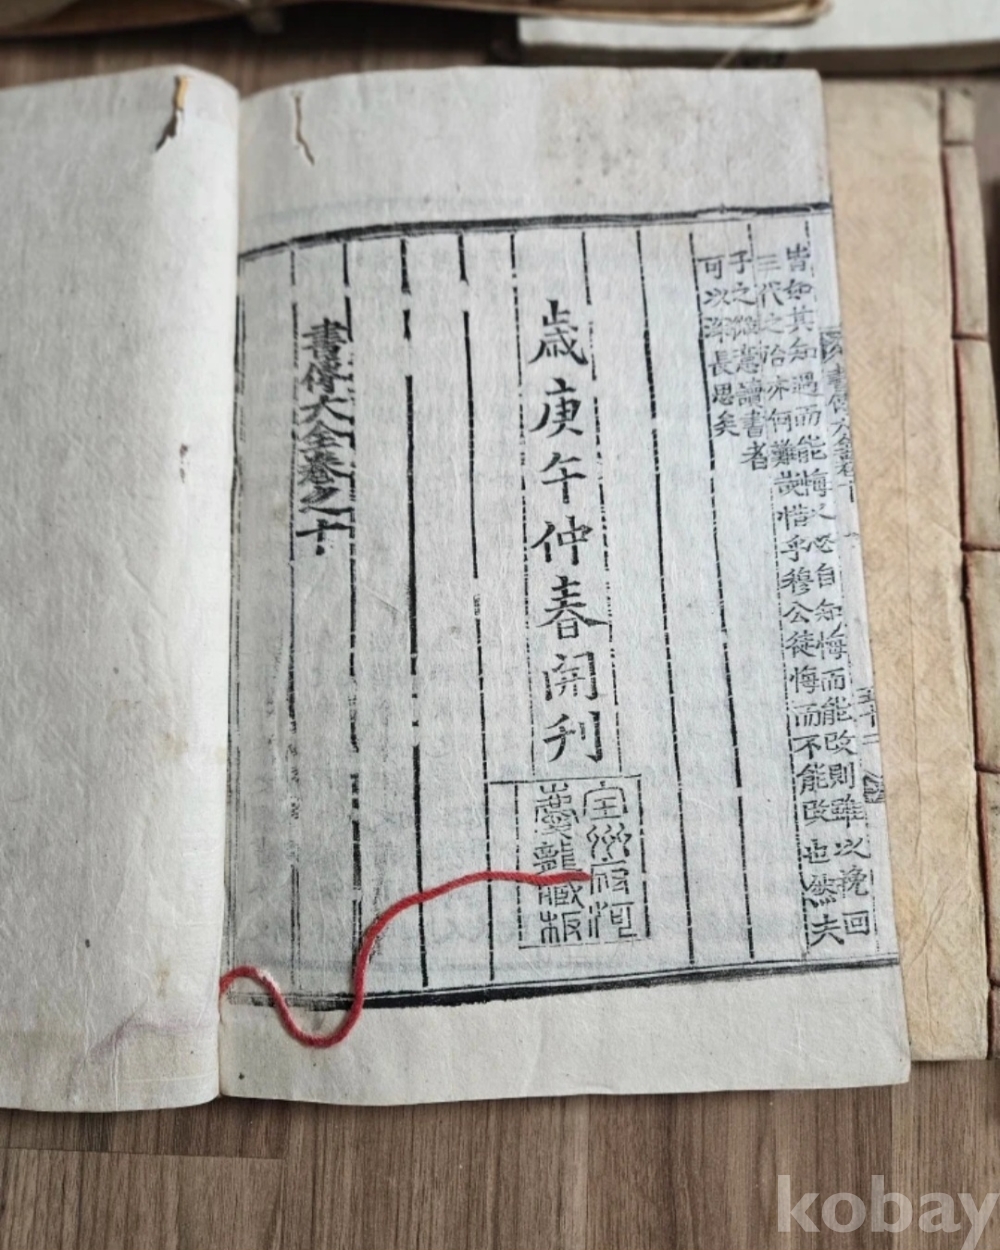 書傳大全卷十
皆如其知過而能悔又必自知悔而能改則雖以挽回
三代之治亦何難哉惜乎穆公徒悔而不能改也然夫
子之微意讀書者
可以深長思矣
歲庚午仲春開刊
全州府河
慶龍藏板
書傳大全卷之十
kobay